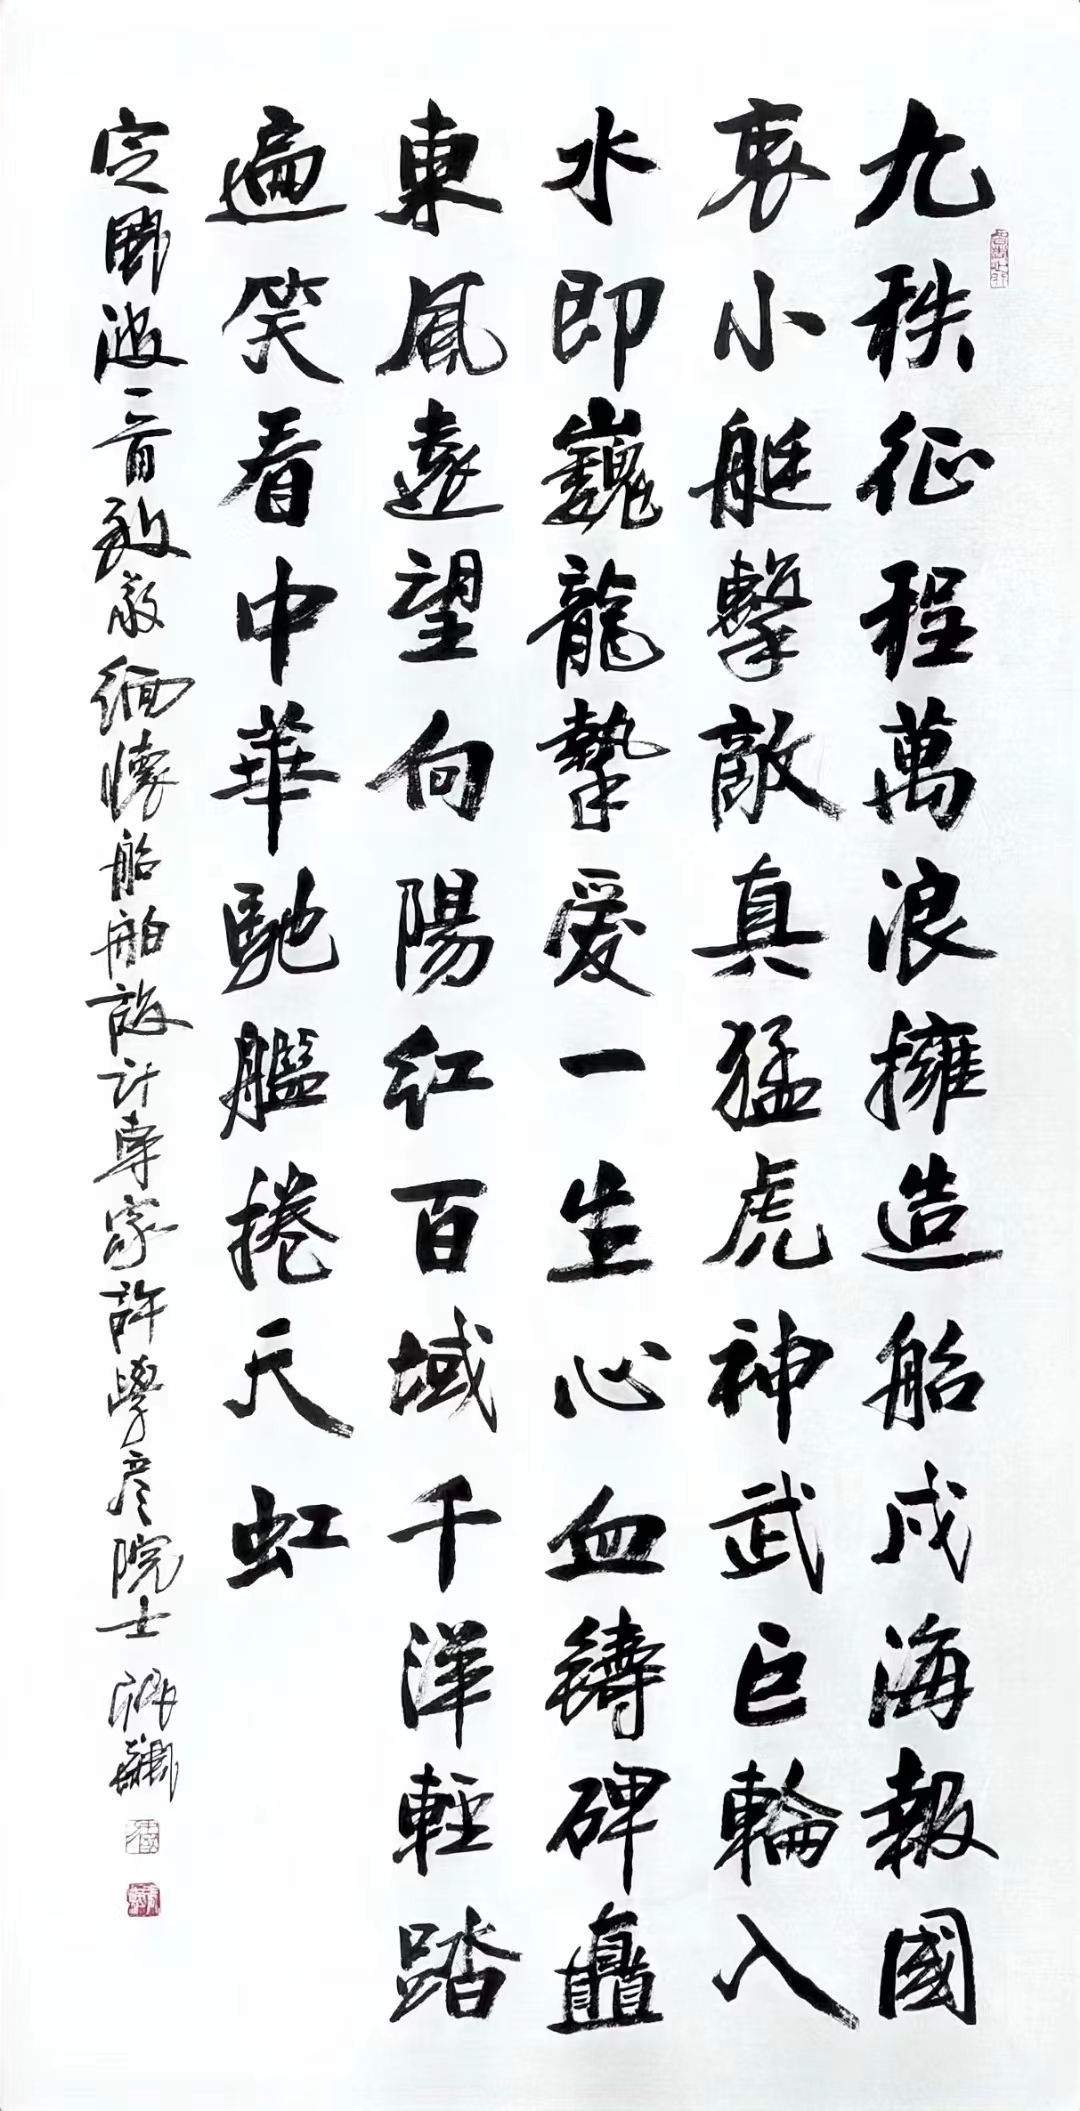 九秩征程萬浪擁造船戍海報國
衷小艇擊敵真猛虎神武巨輪入
水即巍龍摯愛一生心血鑄碑矗
東風遠望向陽紅百域千洋輕踏
遍笑看中華馳艦捲天虹
定風波一首致敬緬懷船舶設計專家許學彥院士